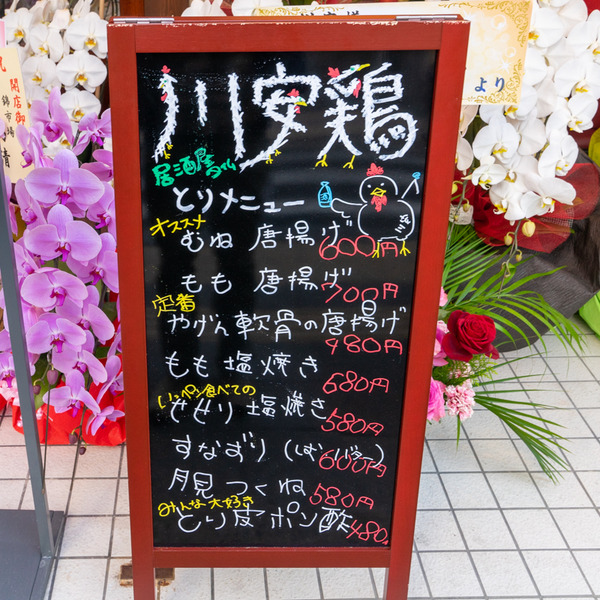 川安鶏
居酒屋タイム
とりメニュー
オススメ
むね 唐揚げ 600円
もも 唐揚げ 700円
定番
やげん軟骨の唐揚げ 480円
もも塩焼き 680円
いっぺん食べての
せせり塩焼き 580円
すなずり(しお バター) 600円
月見つくね 580円
みんな大好き
とり皮ポン酢 480
より
開店御
錦市場